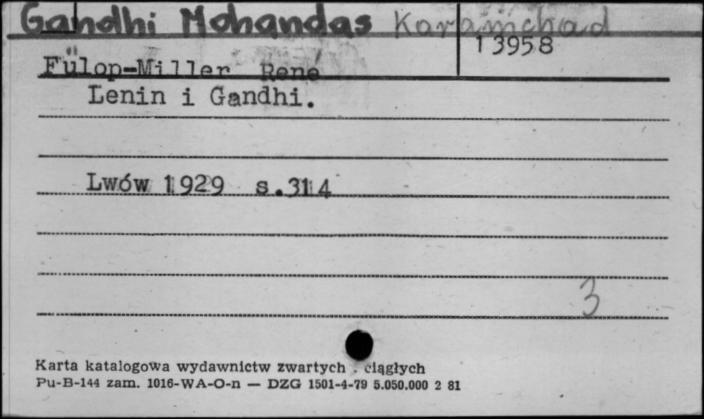 Gandhi Mohandas Karamchad
13958
Fülop-Miller René
Lenin i Gandhi.
Lwów 1929 s.314
3
Karta katalogowa wydawnictw zwartych i ciągłych
Pu-B-144 zam. 1016-WA-O-n — DZG 1501-4-79 5.050.000 2 81